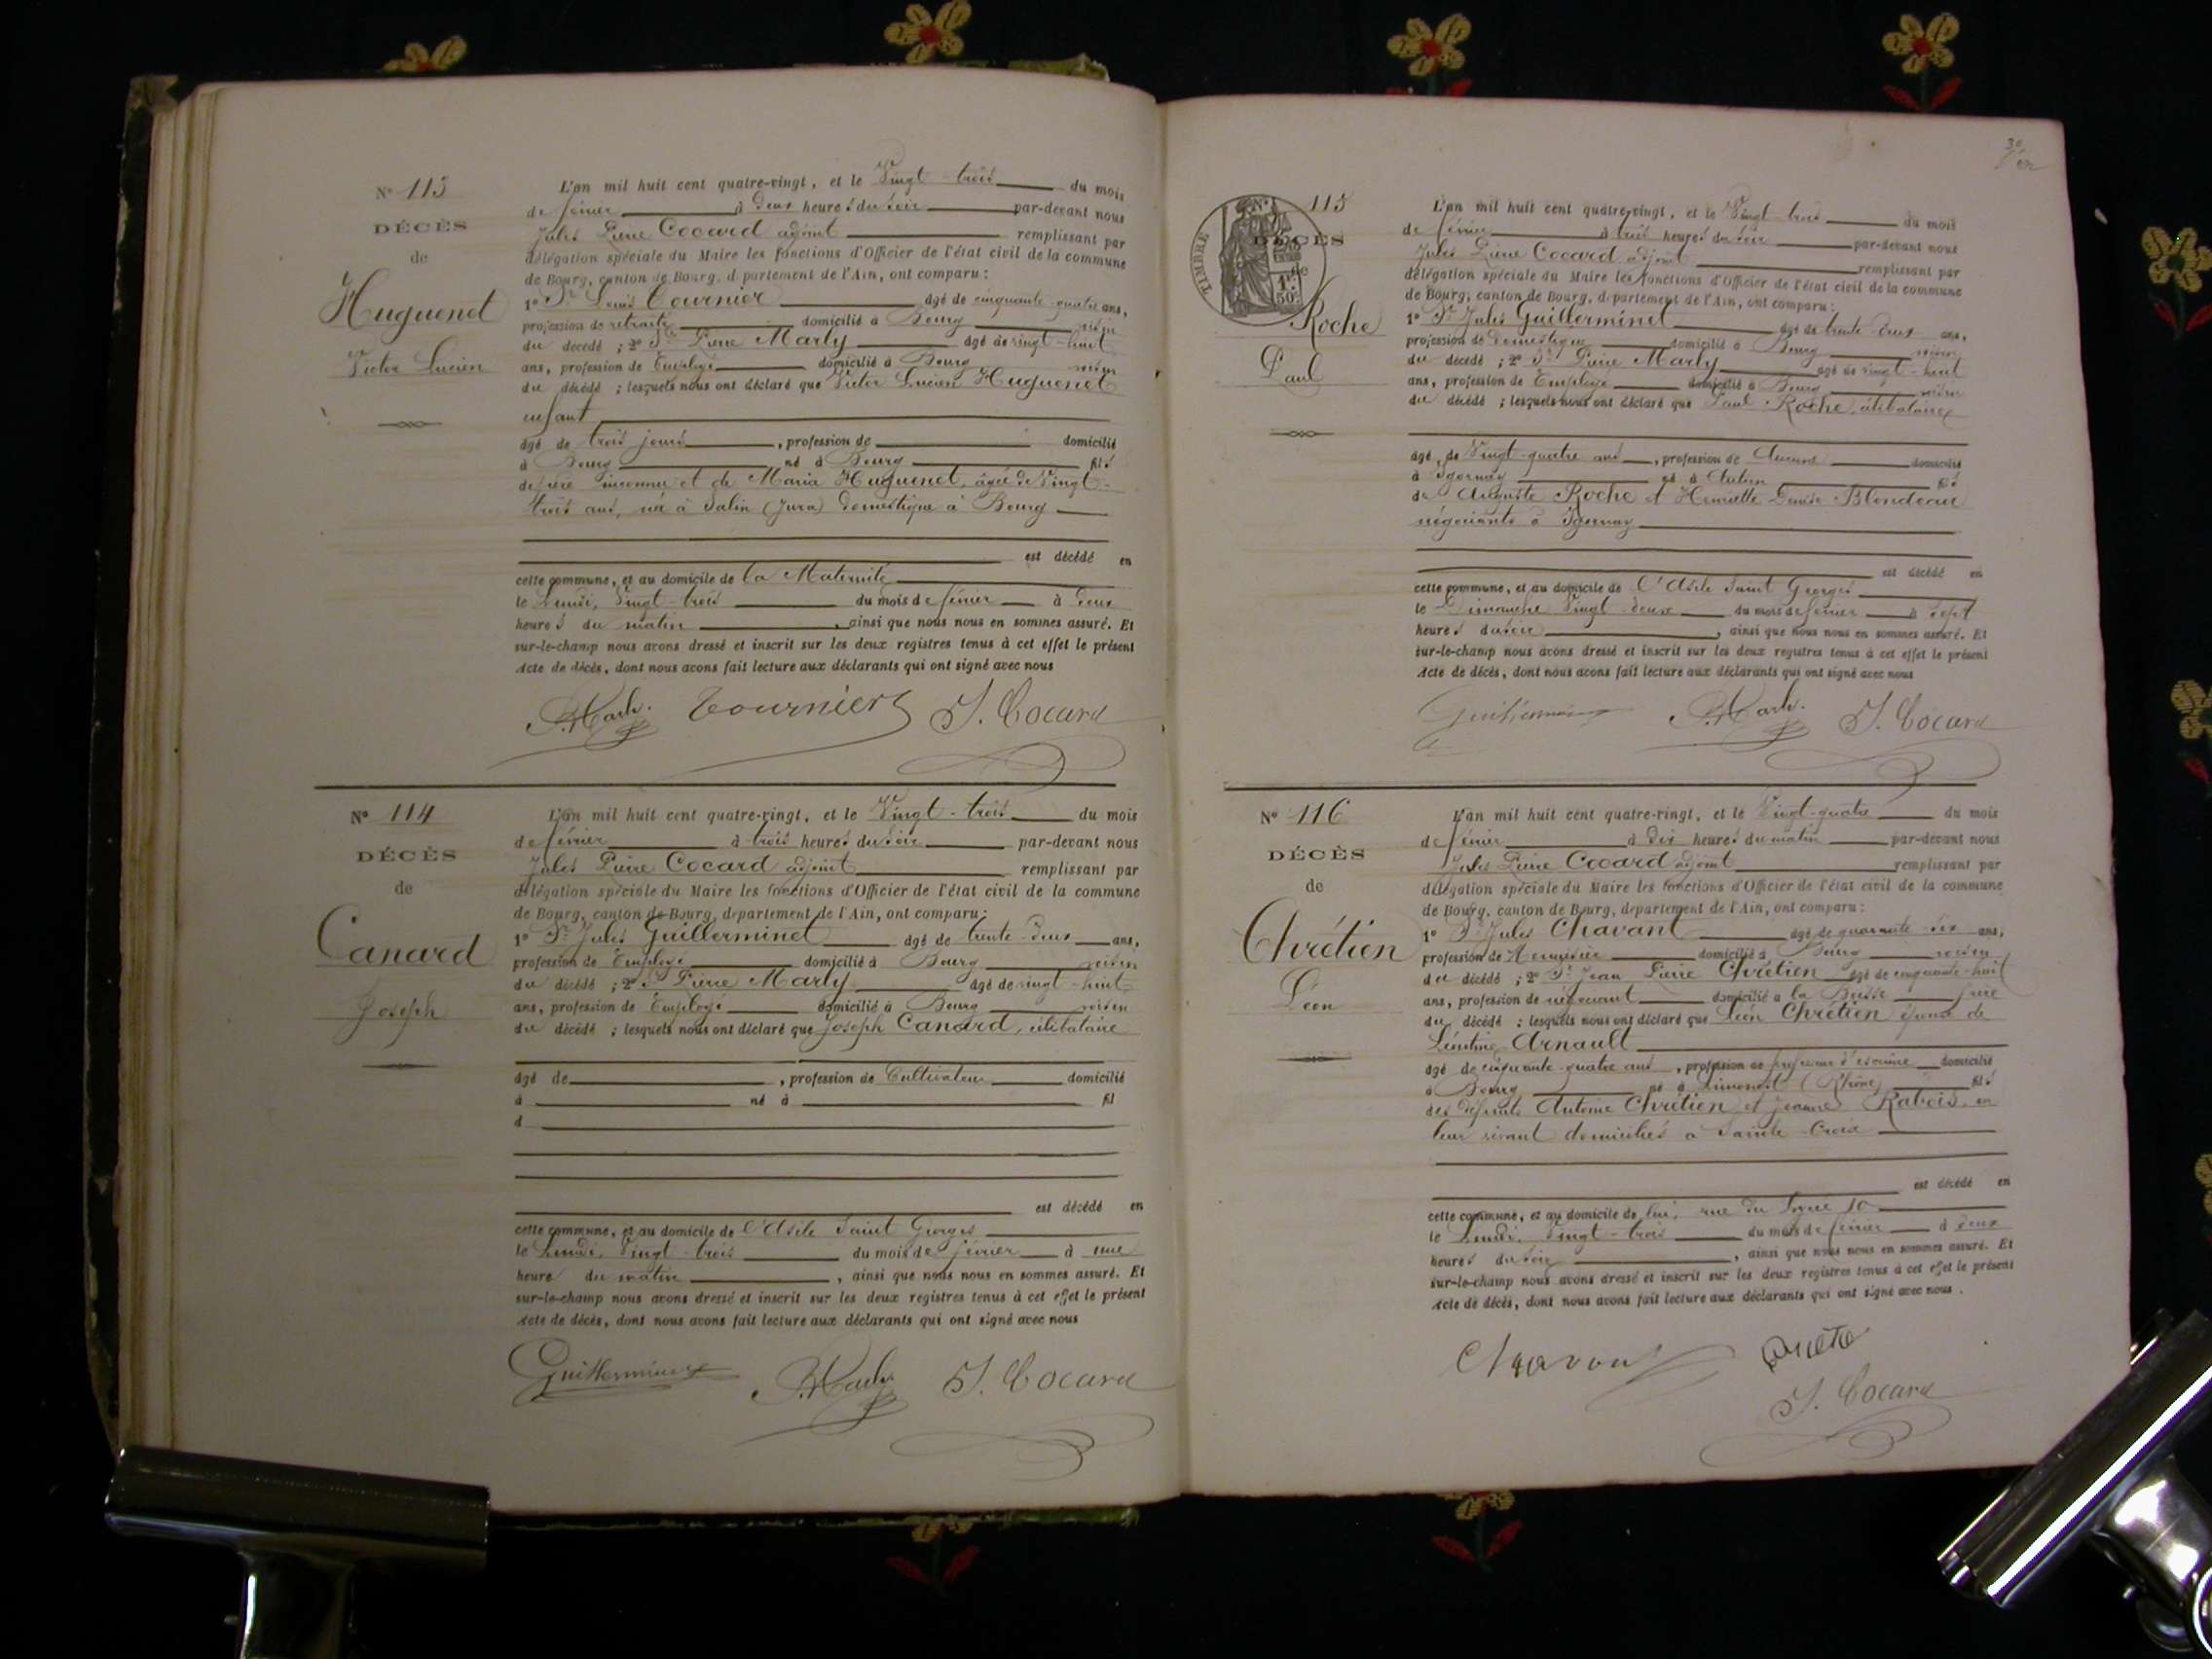 N° 113
DÉCÈS
de
Huguenet
Victor Lucien
L'an mil huit cent quatre-vingt, et le Vingt-trois du mois
de février à deux heures du soir par-devant nous
Jules Pierre Cocard adjoint remplissant par
délégation spéciale du Maire les fonctions d'Officier de l'état civil de la commune
de Bourg, canton de Bourg, département de l'Ain, ont comparu :
1° Sr Louis Tournier âgé de cinquante-quatre ans,
profession de retraité domicilié à Bourg voisin
du décédé ; 2° Sr Pierre Marly âgé de vingt-huit
ans, profession de Employé domicilié à Bourg voisin
du décédé ; lesquels nous ont déclaré que Victor Lucien Huguenet
enfant
âgé de trois jours, profession de domicilié
à Bourg né à Bourg fils
de père inconnu et de Maria Huguenet, âgée de Vingt-
trois ans, née à Salin (Jura) domestique à Bourg
est décédé en
cette commune, et au domicile de la Maternité
le Lundi, Vingt-trois du mois de février à deux
heures du matin, ainsi que nous nous en sommes assuré. Et
sur-le-champ nous avons dressé et inscrit sur les deux registres tenus à cet effet le présent
Acte de décès, dont nous avons fait lecture aux déclarants qui ont signé avec nous
Tournier J. Cocard
N° 114
DÉCÈS
de
Canard
Joseph
L'an mil huit cent quatre-vingt, et le Vingt-trois du mois
de février à trois heures du soir par-devant nous
Jules Pierre Cocard adjoint remplissant par
délégation spéciale du Maire les fonctions d'Officier de l'état civil de la commune
de Bourg, canton de Bourg, département de l'Ain, ont comparu :
1° Sr Jules Guillerminet âgé de trente-deux ans,
profession de Employé domicilié à Bourg voisin
du décédé ; 2° Sr Pierre Marly âgé de vingt-huit
ans, profession de Employé domicilié à Bourg voisin
du décédé ; lesquels nous ont déclaré que Joseph Canard, célibataire
âgé de, profession de Cultivateur domicilié
à né à fil
d
est décédé en
cette commune, et au domicile de l'Asile Saint Georges
le Lundi, Vingt-trois du mois de février à une
heure du matin, ainsi que nous nous en sommes assuré. Et
sur-le-champ nous avons dressé et inscrit sur les deux registres tenus à cet effet le présent
Acte de décès, dont nous avons fait lecture aux déclarants qui ont signé avec nous
Guillerminet J. Cocard
30
N° 115
TIMBRE
DÉCÈS
de
1F 50c
Roche
Paul
L'an mil huit cent quatre-vingt, et le Vingt-trois du mois
de février à trois heures du soir par-devant nous
Jules Pierre Cocard adjoint remplissant par
délégation spéciale du Maire les fonctions d'Officier de l'état civil de la commune
de Bourg, canton de Bourg, département de l'Ain, ont comparu :
1° Sr Jules Guillerminet âgé de trente-deux ans,
profession de domestique domicilié à Bourg voisin
du décédé ; 2° Sr Pierre Marly âgé de vingt-huit
ans, profession de Employé domicilié à Bourg voisin
du décédé ; lesquels nous ont déclaré que Paul Roche, célibataire
âgé de Vingt-quatre ans, profession de Aucune domicilié
à Igornay né à Autun fils
de Auguste Roche et Henriette Denise Blondeau
négociants à Igornay
est décédé en
cette commune, et au domicile de l'Asile Saint Georges
le Dimanche Vingt-deux du mois de février à sept
heures du soir, ainsi que nous nous en sommes assuré. Et
sur-le-champ nous avons dressé et inscrit sur les deux registres tenus à cet effet le présent
Acte de décès, dont nous avons fait lecture aux déclarants qui ont signé avec nous
Guillerminet J. Cocard
N° 116
DÉCÈS
de
Chrétien
Léon
L'an mil huit cent quatre-vingt, et le Vingt-quatre du mois
de février à dix heures du matin par-devant nous
Jules Pierre Cocard adjoint remplissant par
délégation spéciale du Maire les fonctions d'Officier de l'état civil de la commune
de Bourg, canton de Bourg, département de l'Ain, ont comparu :
1° Sr Jules Chavant âgé de quarante-six ans,
profession de Menuisier domicilié à Bourg voisin
du décédé ; 2° Sr Jean Pierre Chrétien âgé de cinquante-huit
ans, profession de négociant domicilié à la Boisse frère
du décédé ; lesquels nous ont déclaré que Léon Chrétien époux de
Léontine Arnault
âgé de cinquante-quatre ans, profession de professeur d'escrime domicilié
à Bourg né à Limonest (Rhône) fils
des défunts Antoine Chrétien et Jeanne Rabois, en
leur vivant domiciliés à Sainte-Croix
est décédé en
cette commune, et au domicile de lui, rue du 10
le Lundi, Vingt-trois du mois de février à deux
heures du soir, ainsi que nous nous en sommes assuré. Et
sur-le-champ nous avons dressé et inscrit sur les deux registres tenus à cet effet le présent
Acte de décès, dont nous avons fait lecture aux déclarants qui ont signé avec nous.
Chavant
J. Cocard